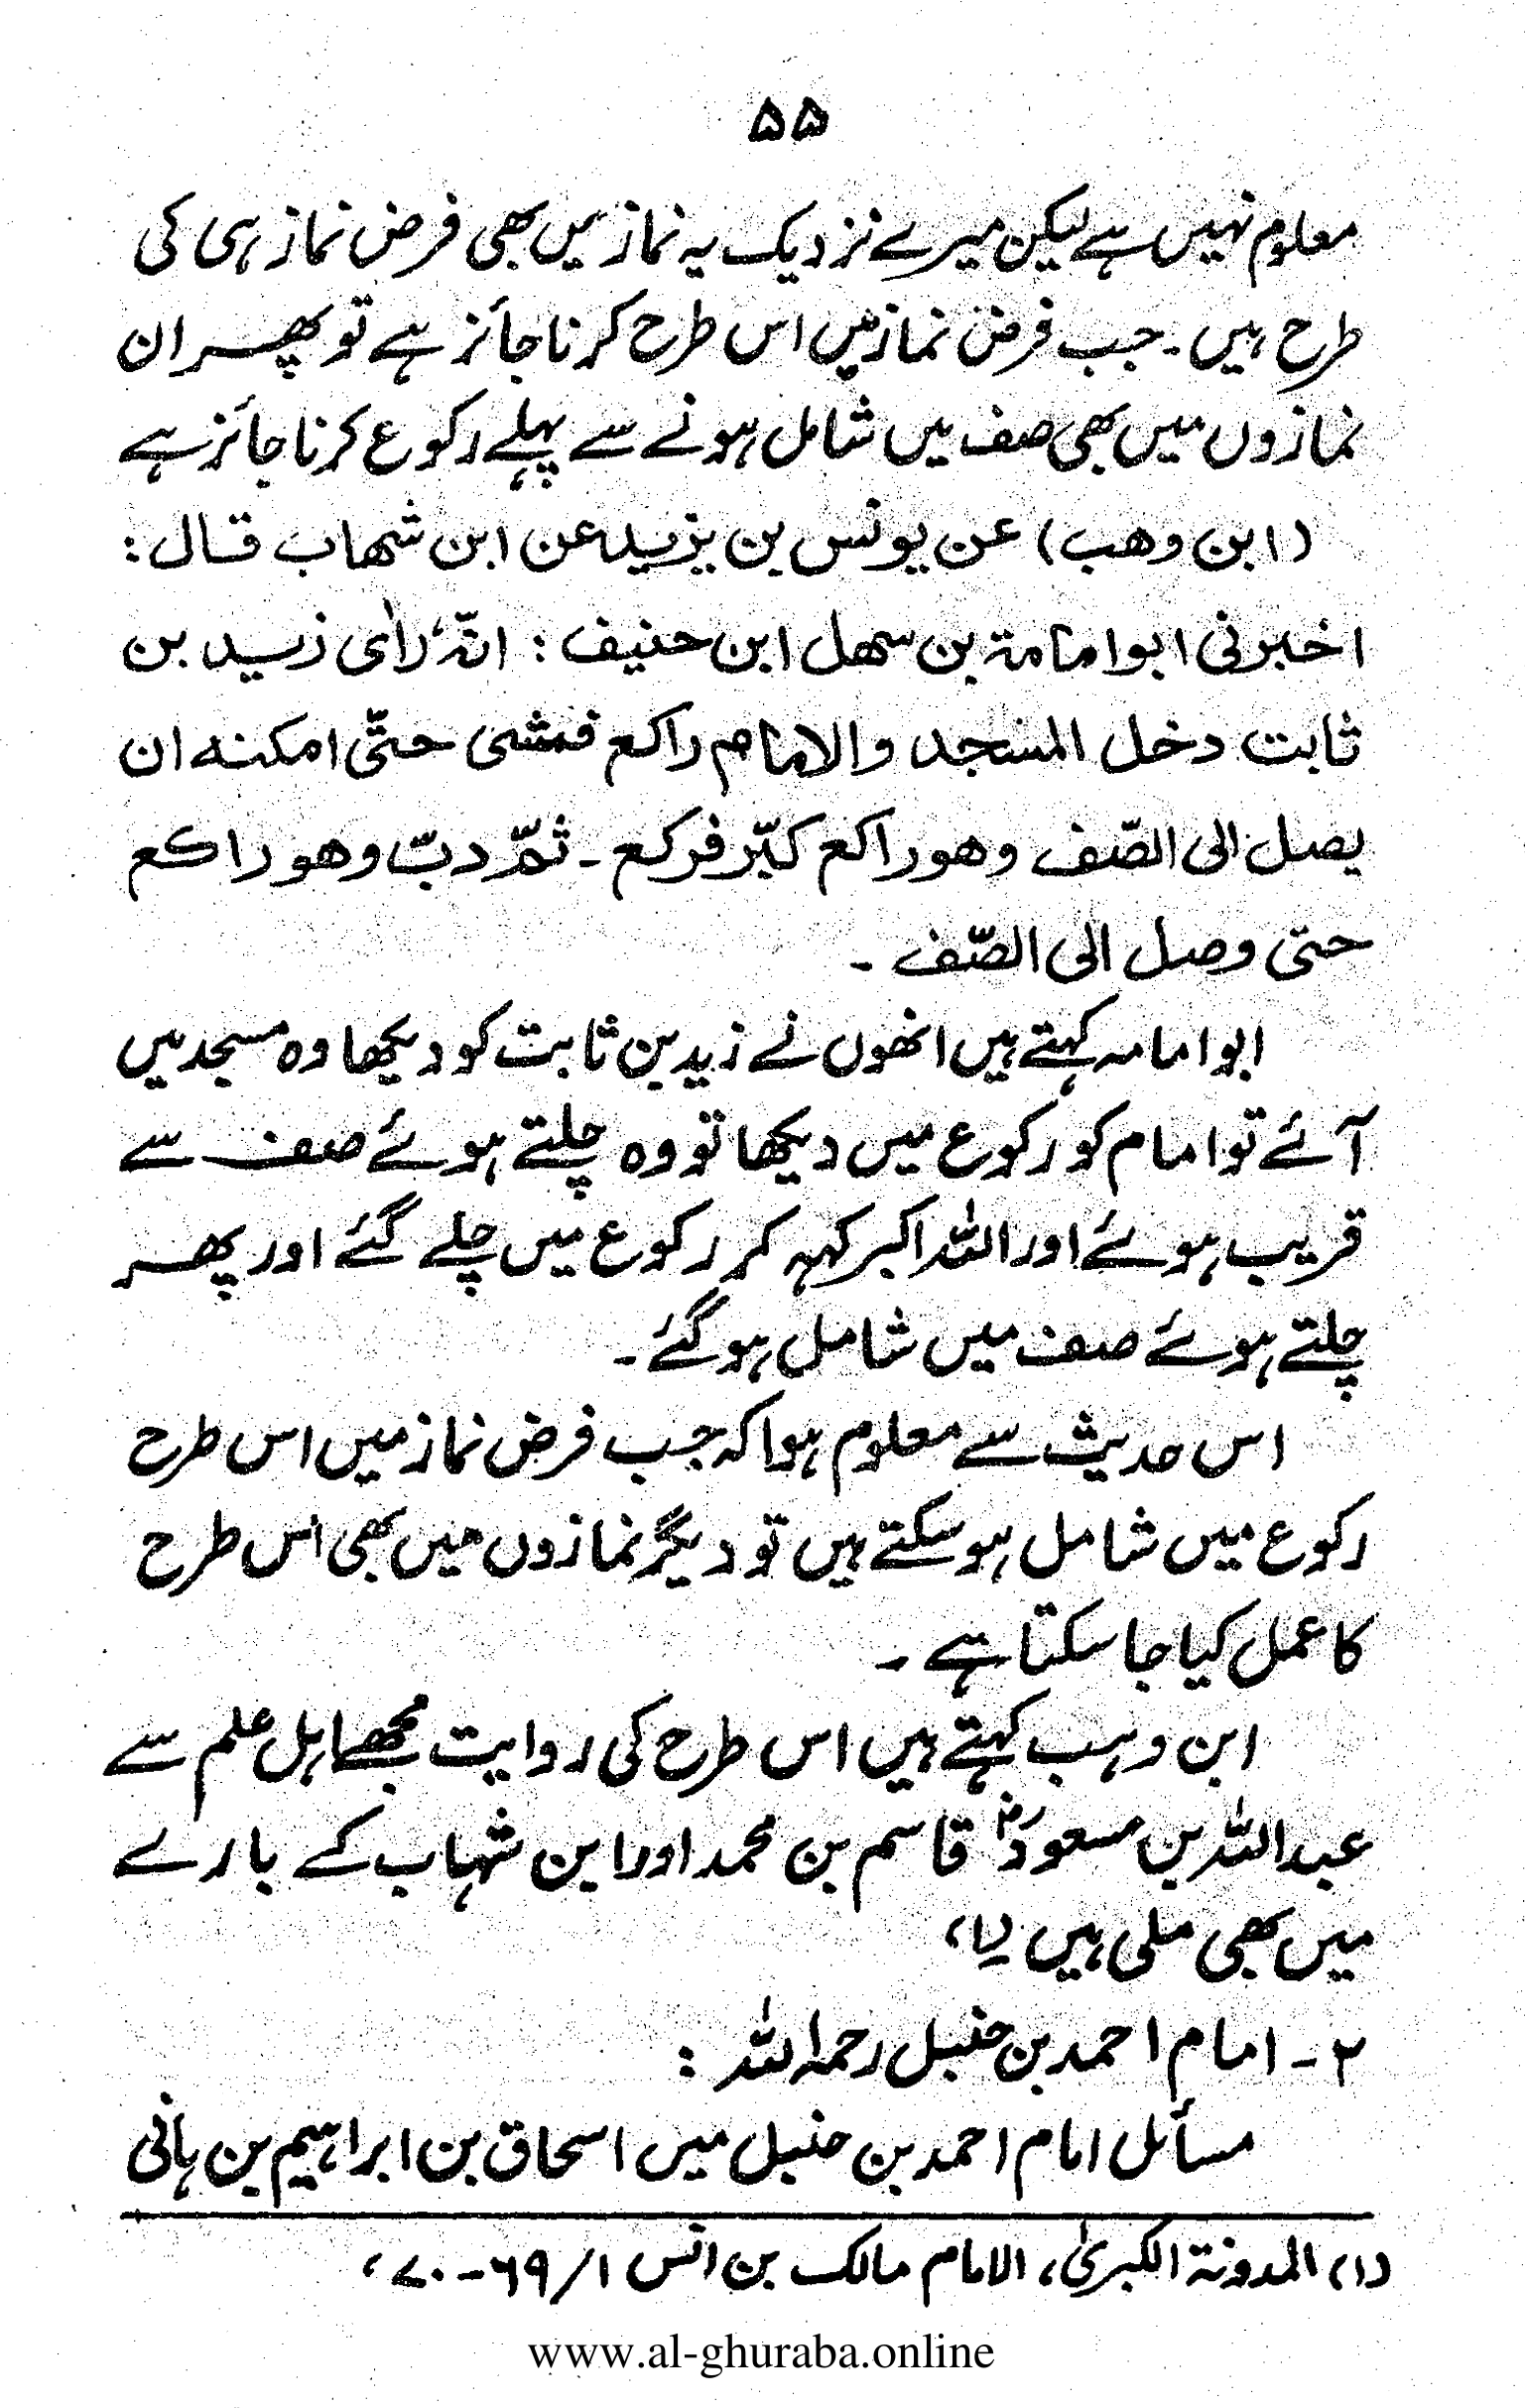 ۵۵
معلوم نہیں ہے لیکن میرے نزدیک یہ نمازیں بھی فرض نماز ہی کی
طرح ہیں۔ جب فرض نماز میں اس طرح کرنا جائز ہے تو پھر ان
نمازوں میں بھی صف میں شامل ہونے سے پہلے رکوع کرنا جائز ہے
(ابن وھب) عن یونس بن یزید عن ابن شھاب قال:
اخبرنی ابوامامۃ بن سھل ابن حنیف: انّہٗ رأی زید بن
ثابت دخل المسجد والامام راکع فمشی حتّی امکنہ ان
یصل الی الصّف وھو راکع کبّر فرکع۔ ثمّ دبّ وھو راکع
حتی وصل الی الصّف۔
ابوامامہ کہتے ہیں انھوں نے زید بن ثابت کو دیکھا وہ مسجد میں
آئے تو امام کو رکوع میں دیکھا تو وہ چلتے ہوئے صف سے
قریب ہوئے اور اللہ اکبر کہہ کر رکوع میں چلے گئے اور پھر
چلتے ہوئے صف میں شامل ہوگئے۔
اس حدیث سے معلوم ہوا کہ جب فرض نماز میں اس طرح
رکوع میں شامل ہوسکتے ہیں تو دیگر نمازوں میں بھی اس طرح
کا عمل کیا جاسکتا ہے۔
ابن وہب کہتے ہیں اس طرح کی روایت مجھے اہل علم سے
عبداللہ بن مسعودؓ قاسم بن محمد اور ابن شہاب کے بارے
میں بھی ملی ہیں (۱)
۲۔ امام احمد بن حنبل رحمہ اللہ:
مسائل امام احمد بن حنبل میں اسحاق بن ابراہیم بن ہانی
(۱) المدونۃ الکبریٰ، الامام مالک بن انس ۱/۶۹-۷۰،
www.al-ghuraba.online